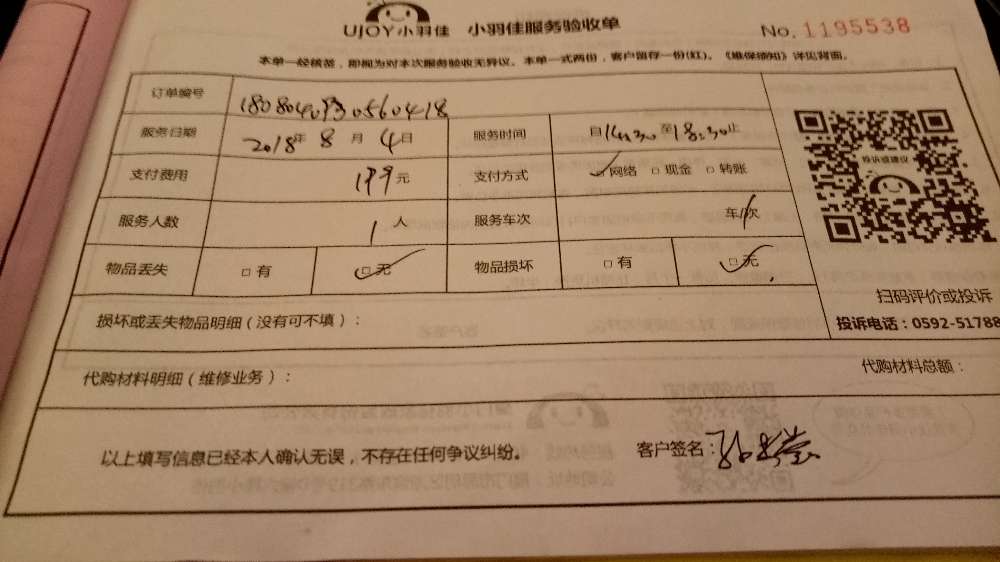 UJOY小羽佳 小羽佳服务验收单 No. 1195538
本单一经核签，即视为对本次服务验收无异议。本单一式两份，客户留存一份(红)。《维保须知》详见背面。
订单编号
服务日期 2018年 8 月 4日 服务时间 自14:30至18:30止
支付费用 199元 支付方式 网络 现金 转账
服务人数 1人 服务车次 车/次
物品丢失 有 无 物品损坏 有 无
投诉或建议
扫码评价或投诉
投诉电话：0592-51788
损坏或丢失物品明细（没有可不填）：
代购材料明细（维修业务）： 代购材料总额：
以上填写信息已经本人确认无误，不存在任何争议纠纷。 客户签名：